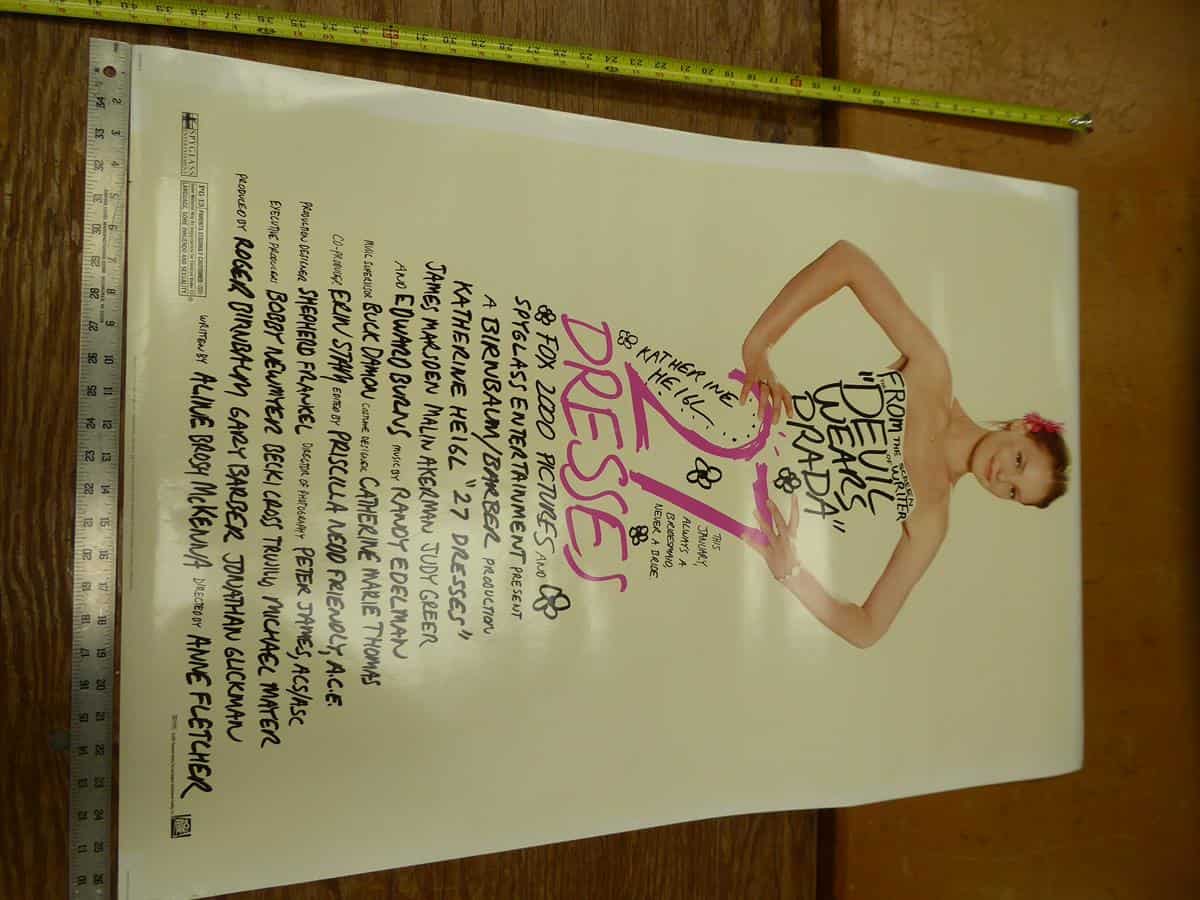 FROM THE SCREEN
WRITER OF
"THE DEVIL
WEARS
PRADA"
THIS
JANUARY,
ALWAYS A
BRIDESMAID,
NEVER A BRIDE
KATHERINE
HEIGL
27
DRESSES
FOX 2000 PICTURES AND
SPYGLASS ENTERTAINMENT PRESENT
A BIRNBAUM/BARBER PRODUCTION
KATHERINE HEIGL "27 DRESSES"
JAMES MARSDEN MALIN AKERMAN JUDY GREER
AND EDWARD BURNS MUSIC BY RANDY EDELMAN
MUSIC SUPERVISOR BUCK DAMON COSTUME DESIGNER CATHERINE MARIE THOMAS
CO-PRODUCER ERIN STAM EDITED BY PRISCILLA NEDD FRIENDLY, A.C.E.
PRODUCTION DESIGNER SHEPHERD FRANKEL DIRECTOR OF PHOTOGRAPHY PETER JAMES, ACS/ASC
EXECUTIVE PRODUCERS BOBBY NEWMYER BECKI CROSS TRUJILLO MICHAEL MAYER
PRODUCED BY ROGER BIRNBAUM GARY BARBER JONATHAN GLICKMAN
WRITTEN BY ALINE BROSH MCKENNA DIRECTED BY ANNE FLETCHER
SPYGLASS
ENTERTAINMENT
PG-13 PARENTS STRONGLY CAUTIONED
LANGUAGE, SOME INNUENDO AND SEXUALITY